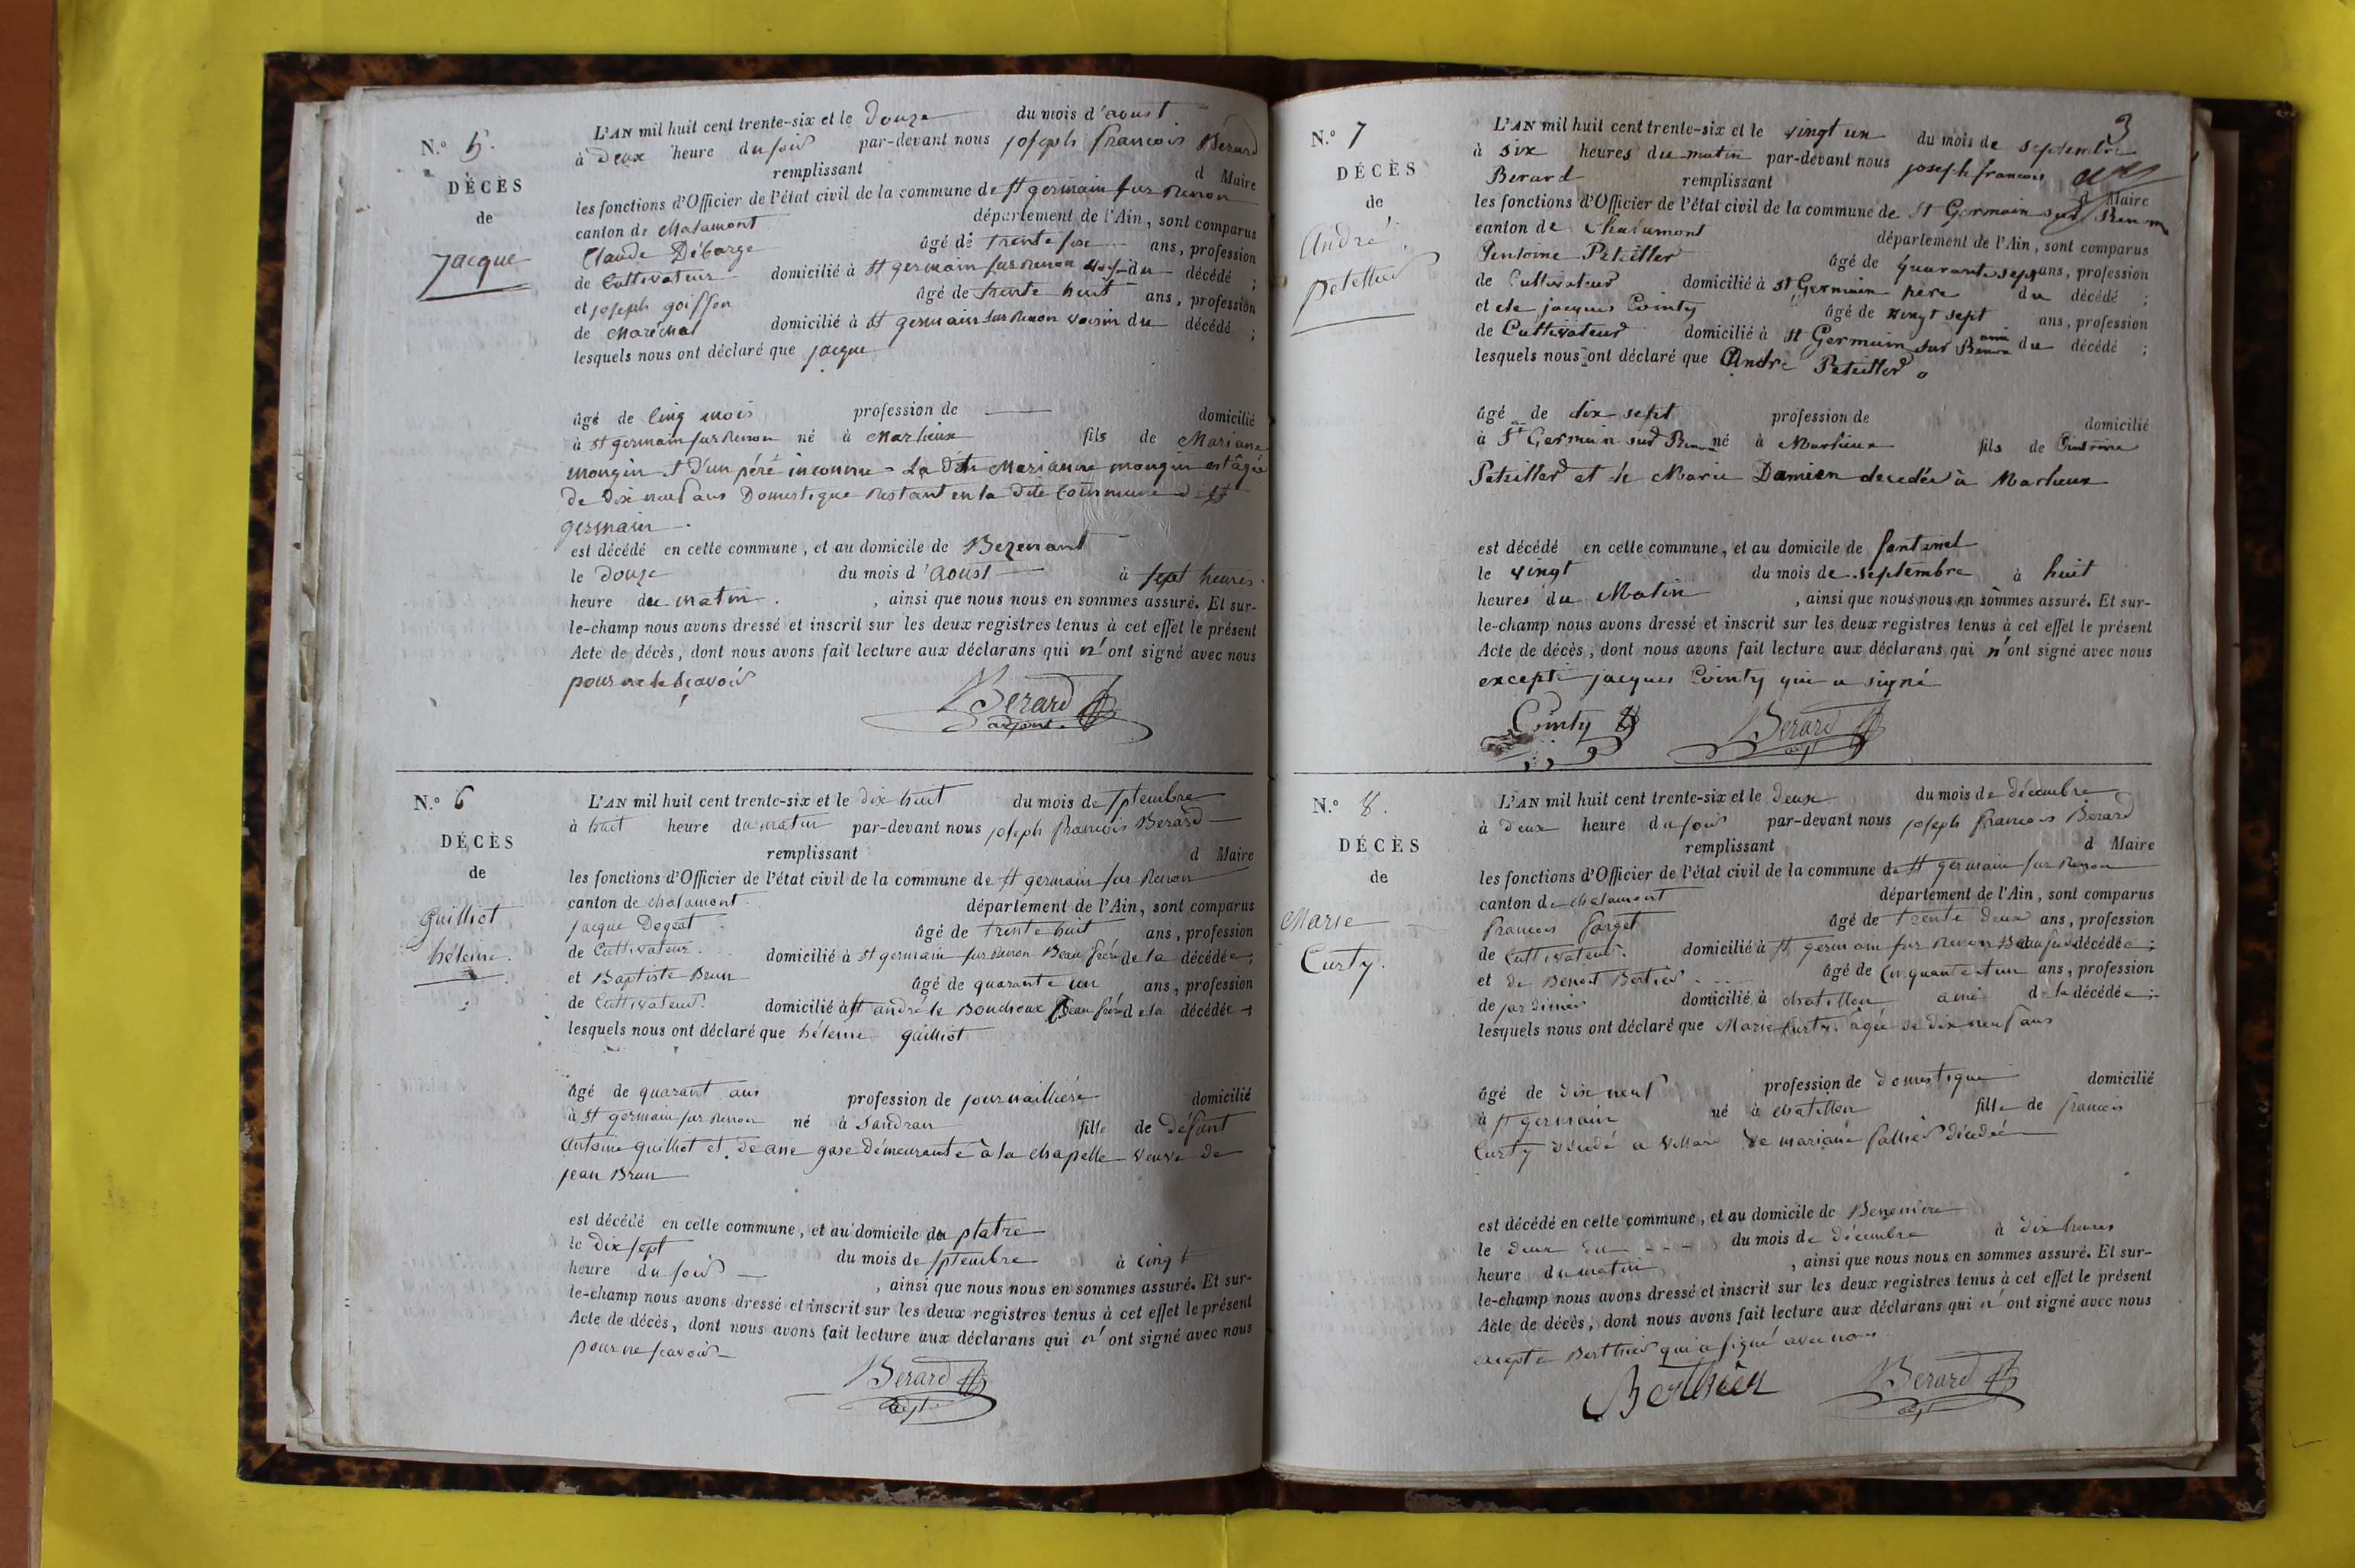 N.° 5.
DÉCÈS
de
Jacque
L'AN mil huit cent trente-six et le douze du mois d'aoust
à deux heure du soir par-devant nous joseph francois Bérard
remplissant d Maire
les fonctions d'Officier de l'état civil de la commune de st germain sur Renon
canton de chalamont département de l'Ain, sont comparus
Claude Débarge âgé de trente six ans, profession
de Cultivateur domicilié à st germain sur renon du décédé ;
et joseph goiffon âgé de trente huit ans, profession
de Maréchal domicilié à st germain sur renon voisin du décédé ;
lesquels nous ont déclaré que jacque
âgé de cinq mois profession de — domicilié
à st germain sur renon né à Marlieux fils de Mariane
mongin et d'un péré inconnu = La dite Marianne mongin est âgée
de dix neuf ans Domestique restant en la dite commune d st
germain.
est décédé en cette commune, et au domicile de Bezenant
le douze du mois d'aoust à sept heures
heure du matin. , ainsi que nous nous en sommes assuré. Et sur-
le-champ nous avons dressé et inscrit sur les deux registres tenus à cet effet le présent
Acte de décès, dont nous avons fait lecture aux déclarans qui n'ont signé avec nous
pour ne le sçavoir
Berard
adjoint
N.° 6
DÉCÈS
de
Guilliot
héleine.
L'AN mil huit cent trente-six et le dix huit du mois de septembre
à huit heure du matin par-devant nous joseph francois Berard
remplissant d Maire
les fonctions d'Officier de l'état civil de la commune de st germain sur Renon
canton de chalamont département de l'Ain, sont comparus
jacque Degeat âgé de trente huit ans, profession
de Cultivateur domicilié à st germain sur renon Beau frére de la décédée ;
et Baptiste Brun âgé de quarante un ans, profession
de Cultivateur domicilié à st andré le Bouchoux Beau frére de la décédée
lesquels nous ont déclaré que héleine guilliot
âgé de quarant ans profession de journailliére domicilié
à st germain sur renon né à Sandran fille de défunt
Antoine guilliot et de ane gase démeurante à la chapelle veuve de
jean Brun
est décédé en cette commune, et au domicile du platre
le dix sept du mois de septembre à cinq
heure du soir , ainsi que nous nous en sommes assuré. Et sur-
le-champ nous avons dressé et inscrit sur les deux registres tenus à cet effet le présent
Acte de décès, dont nous avons fait lecture aux déclarans qui n'ont signé avec nous
pour ne scavoir
Berard
adjt
3
N.° 7
DÉCÈS
de
André
Peteillier
L'AN mil huit cent trente-six et le vingt un du mois de septembre
à six heures du matin par-devant nous joseph francois
Berard remplissant d Maire
les fonctions d'Officier de l'état civil de la commune de St Germain sur Renon
canton de Chalamont département de l'Ain, sont comparus
Antoine Peteiller âgé de quarante sept ans, profession
de Cultivateur domicilié à st Germain père du décédé ;
et de jacques Cointy âgé de vingt sept ans, profession
de Cultivateur domicilié à st Germain sur Renon ami du décédé ;
lesquels nous ont déclaré que André Peteiller
âgé de dix sept profession de domicilié
à St Germain sur Renon né à Marlieux fils de Antoine
Peteiller et de Marie Damien decedée à Marlieux
est décédé en cette commune, et au domicile de fontenel
le vingt du mois de septembre à huit
heures du Matin , ainsi que nous nous en sommes assuré. Et sur-
le-champ nous avons dressé et inscrit sur les deux registres tenus à cet effet le présent
Acte de décès, dont nous avons fait lecture aux déclarans qui n'ont signé avec nous
excepté jacques Cointy qui a signé
Cointy Berard
N.° 8.
DÉCÈS
de
Marie
Curty.
L'AN mil huit cent trente-six et le deux du mois de décembre
à deux heure du soir par-devant nous joseph francois Berard
remplissant d Maire
les fonctions d'Officier de l'état civil de la commune de st germain sur renon
canton de chalamont département de l'Ain, sont comparus
francois forget âgé de trente deux ans, profession
de Cultivateur domicilié à st germain sur renon décédée ;
et de Benoit Bertier âgé de cinquante un ans, profession
de jardinier domicilié à chatillon ami de la décédée ;
lesquels nous ont déclaré que Marie Curty. âgée de dix neuf ans
âgé de dix neuf profession de domestique domicilié
à st germain né à chatillon fille de francois
Curty décédé a villars de mariane décédée
est décédé en cette commune, et au domicile de
le deux du mois de décembre à dix heures
heure du matin , ainsi que nous nous en sommes assuré. Et sur-
le-champ nous avons dressé et inscrit sur les deux registres tenus à cet effet le présent
Acte de décès, dont nous avons fait lecture aux déclarans qui n'ont signé avec nous
excepte Berthier qui a signé avec nous
Berthier Berard
adjt